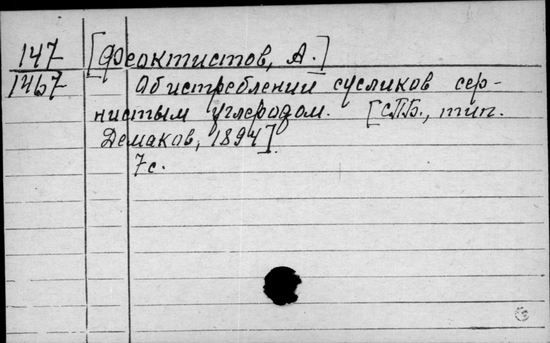 147
1467
[Феоктистов, А.]
Об истреблении сусликов сер-
нистым углеродом. [СПБ., тип.
Демаков, 1894].
7с.